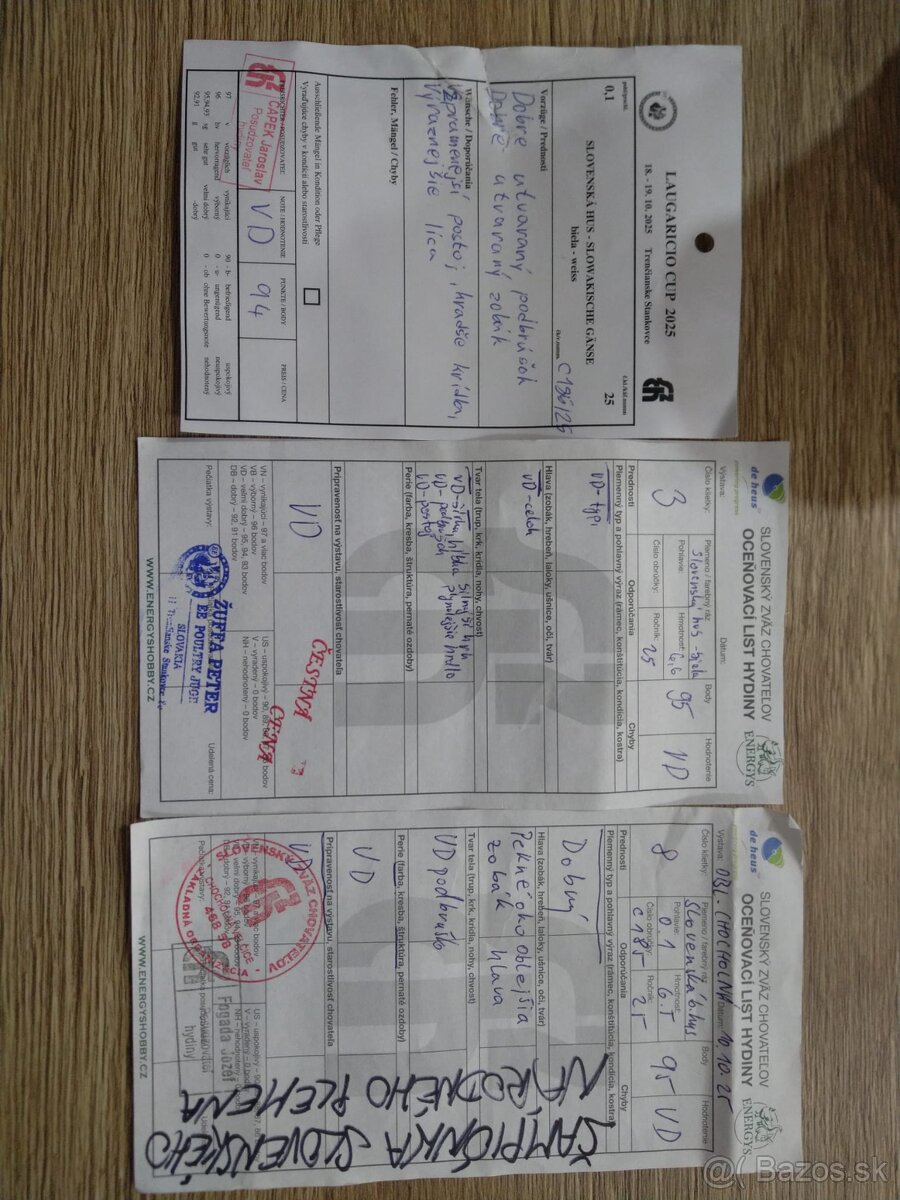 LAUGARICIO CUP 2025
18. - 19. 10. 2025 Trenčianske Stankovce
0,1
SLOVENSKÁ HUS - SLOWAKISCHE GÄNSE
biela - weiss
25
C186/25
Vorzüge / Prednosti
Dobre utvaraný podbrušok
Dobre utvaraný zobák
Wünsche / Doporučania
Vzpriamenejší postoj, kratšie krídla,
Výraznejšie líca
Fehler, Mängel / Chyby
Ausschließende Mängel in Kondition oder Pflege
Vyraďujúce chyby v kondícii alebo starostlivosti
NOTE / HODNOTENIE
PUNKTE / BODY
PREIS / CENA
ČAPEK Jaroslav
Posudzovateľ
VD
94
97 v vorzüglich vynikajúci
96 hv hervorragend výborný
95,94,93 sg sehr gut veľmi dobrý
92,91 g gut dobrý
90 - b- befriedigend uspokojivý
0 - u- ungenügend neuspokojivý
0 - ob ohne Bewertungsnote nehodnotený
de heus
SLOVENSKÝ ZVÄZ CHOVATEĽOV
OCEŇOVACÍ LIST HYDINY
ENERGYS
Výstava:
Dátum:
Číslo klietky:
Plemeno / farebný ráz
Body
Hodnotenie
3
Slovenská hus - biela
95
VD
Pohlavie:
Hmotnosť: 6,6
Číslo obrúčky:
Ročník:
25
Prednosti
Odporúčania
Chyby
Plemenný typ a pohlavný výraz (rámec, konštitúcia, kondícia, kostra)
VD-typ,
Hlava (zobák, hrebeň, laloky, ušnice, oči, tvár)
VD-celok
Tvar tela (trup, krk, krídla, nohy, chvost)
VD-šírka, hĺbka silnejší krk
VD-podbrušok plynulejšie hrdlo
VD-postoj
Perie (farba, kresba, štruktúra, pernaté ozdoby)
Pripravenosť na výstavu, starostlivosť chovateľa
VD
ČESTNÁ
CENA
VN – vynikajúci – 97 a viac bodov
VB – výborný – 96 bodov
VD – veľmi dobrý – 95, 94, 93 bodov
DB – dobrý – 92, 91 bodov
US – uspokojivý – 90, 89, bodov
V – vyradený – 0 bodov
NH – nehodnotený – 0 bodov
Pečiatka výstavy:
Udelená cena:
ŽUFFA PETER
EE POULTRY JUGE
SLOVAKIA
Trenčianske Stankovce
WWW.ENERGYSHOBBY.CZ
de heus
SLOVENSKÝ ZVÄZ CHOVATEĽOV
OCEŇOVACÍ LIST HYDINY
ENERGYS
Výstava: OBL. CHOCHOLNÁ Dátum: 10.10.25
Číslo klietky:
Plemeno / farebný ráz
Body
Hodnotenie
8
Slovenská b. hus
95
VD
Pohlavie:
0.1
Hmotnosť:
6.5
Číslo obrúčky:
C185
Ročník:
25
Prednosti
Odporúčania
Chyby
Plemenný typ a pohlavný výraz (rámec, konštitúcia, kondícia, kostra)
Dobrý
Hlava (zobák, hrebeň, laloky, ušnice, oči, tvár)
Pekné oko oblejšia
zobák hlava
Tvar tela (trup, krk, krídla, nohy, chvost)
VD podbruško
Perie (farba, kresba, štruktúra, pernaté ozdoby)
VD
Pripravenosť na výstavu, starostlivosť chovateľa
VD
SLOVENSKÝ ZVÄZ CHOVATEĽOV
ZÁKLADNÁ ORGANIZÁCIA
Fogada Jozef
hydiny
WWW.ENERGYSHOBBY.CZ
ŠAMPIÓNKA SLOVENSKÉHO
NÁRODNÉHO PLEMENA
@( Bazos.sk